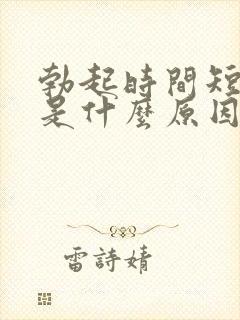 勃起時間短
是什麼原因
雷詩婧